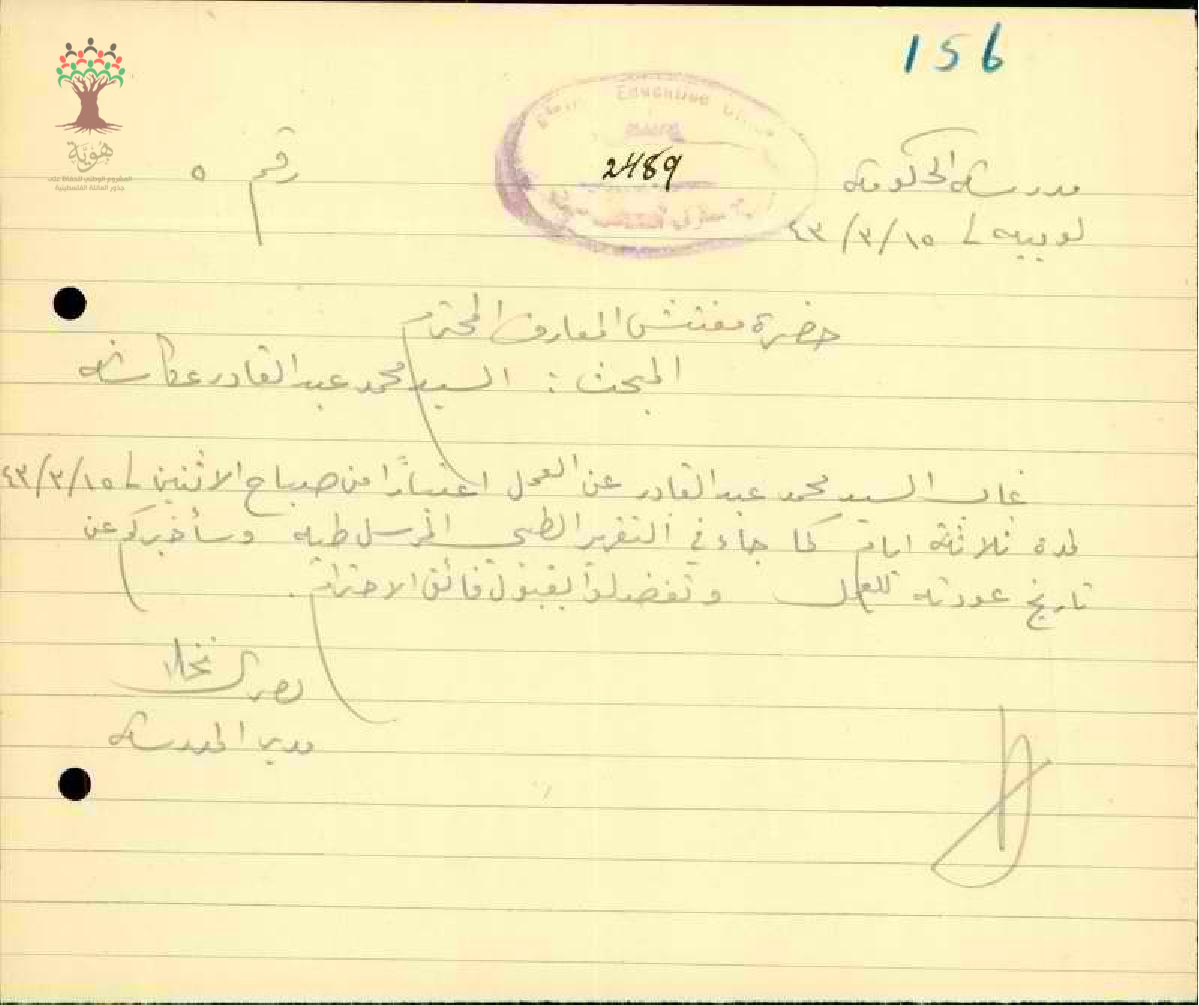 156
هوية
المشروع الوطني للحفاظ على
جذور العائلة الفلسطينية
Education Office
2489
مدرسة الحكومة
رقم ٥
لوبيه في ١٥/٣/٤٣
حضرة مفتش المعارف المحترم
المبحث : السيد محمد عبد القادر عكاشه
غاب السيد محمد عبد القادر عن العمل اعتبارًا من صباح الاثنين في ١٥/٣/٤٣
لمدة ثلاثة ايام كما جاء في التقرير الطبي المرسل طيه وسأخبركم عن
تاريخ عودته للعمل وتفضلوا بقبول فائق الاحترام .
مدير المدرسة